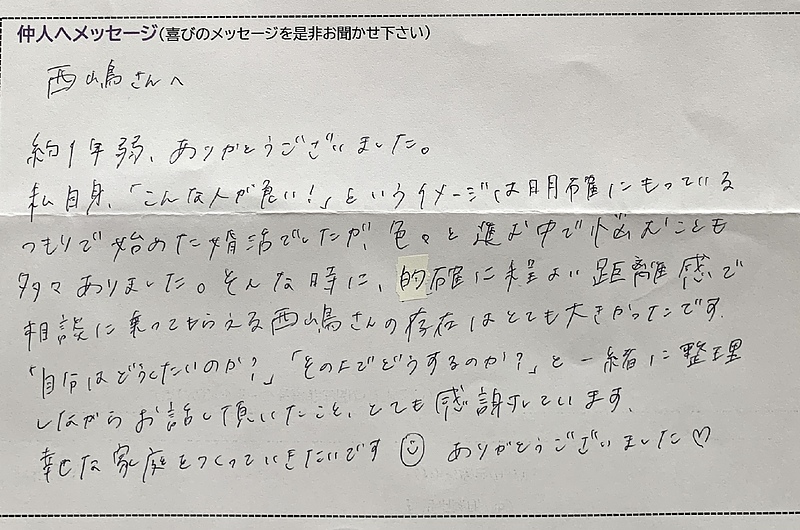 仲人へメッセージ(喜びのメッセージを是非お聞かせ下さい)
西嶋さんへ
約1年弱、ありがとうございました。
私自身、「こんな人が良い!」というイメージは明確にもっている
つもりで始めた婚活でしたが、色々と進む中で悩むことも
多々ありました。そんな時に、的確に程よい距離感で
相談に乗ってもらえる西嶋さんの存在はとても大きかったです。
「自分はどうしたいのか?」「その上でどうするのか?」と一緒に整理
しながらお話し頂いたこと、とても感謝しています。
幸せな家庭をつくっていきたいです☺ ありがとうございました♡